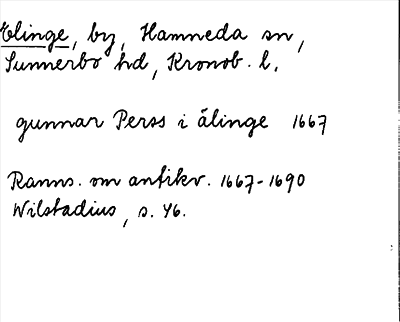 Elinge, by, Hamneda sn,
Sunnerbo hd, Kronob. l.
gunnar Perss i älinge 1667
Ranns. om antikv. 1667-1690
Wilstadius, s. 46.